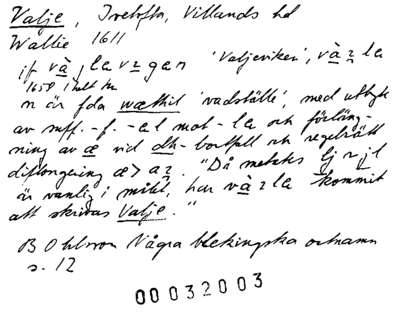 Valje, Ivetofta, Villands hd
Wallie 1611
jf vàjlavrgan 'Valjeviken', vàrla
1650 1 helt m
n är fda wæthil 'vadställe', med utbyte
av suff. -f. -al mot -la och förläng-
ning av æ vid dh-bortfall och regelrätt
diftongering æ > aɛ. "Då metates lj > jl
är vanlig i målet, har vàɛla kommit
att skrivas Valje."
B Ohlsson Några blekingska ortnamn
s. 12
00032003